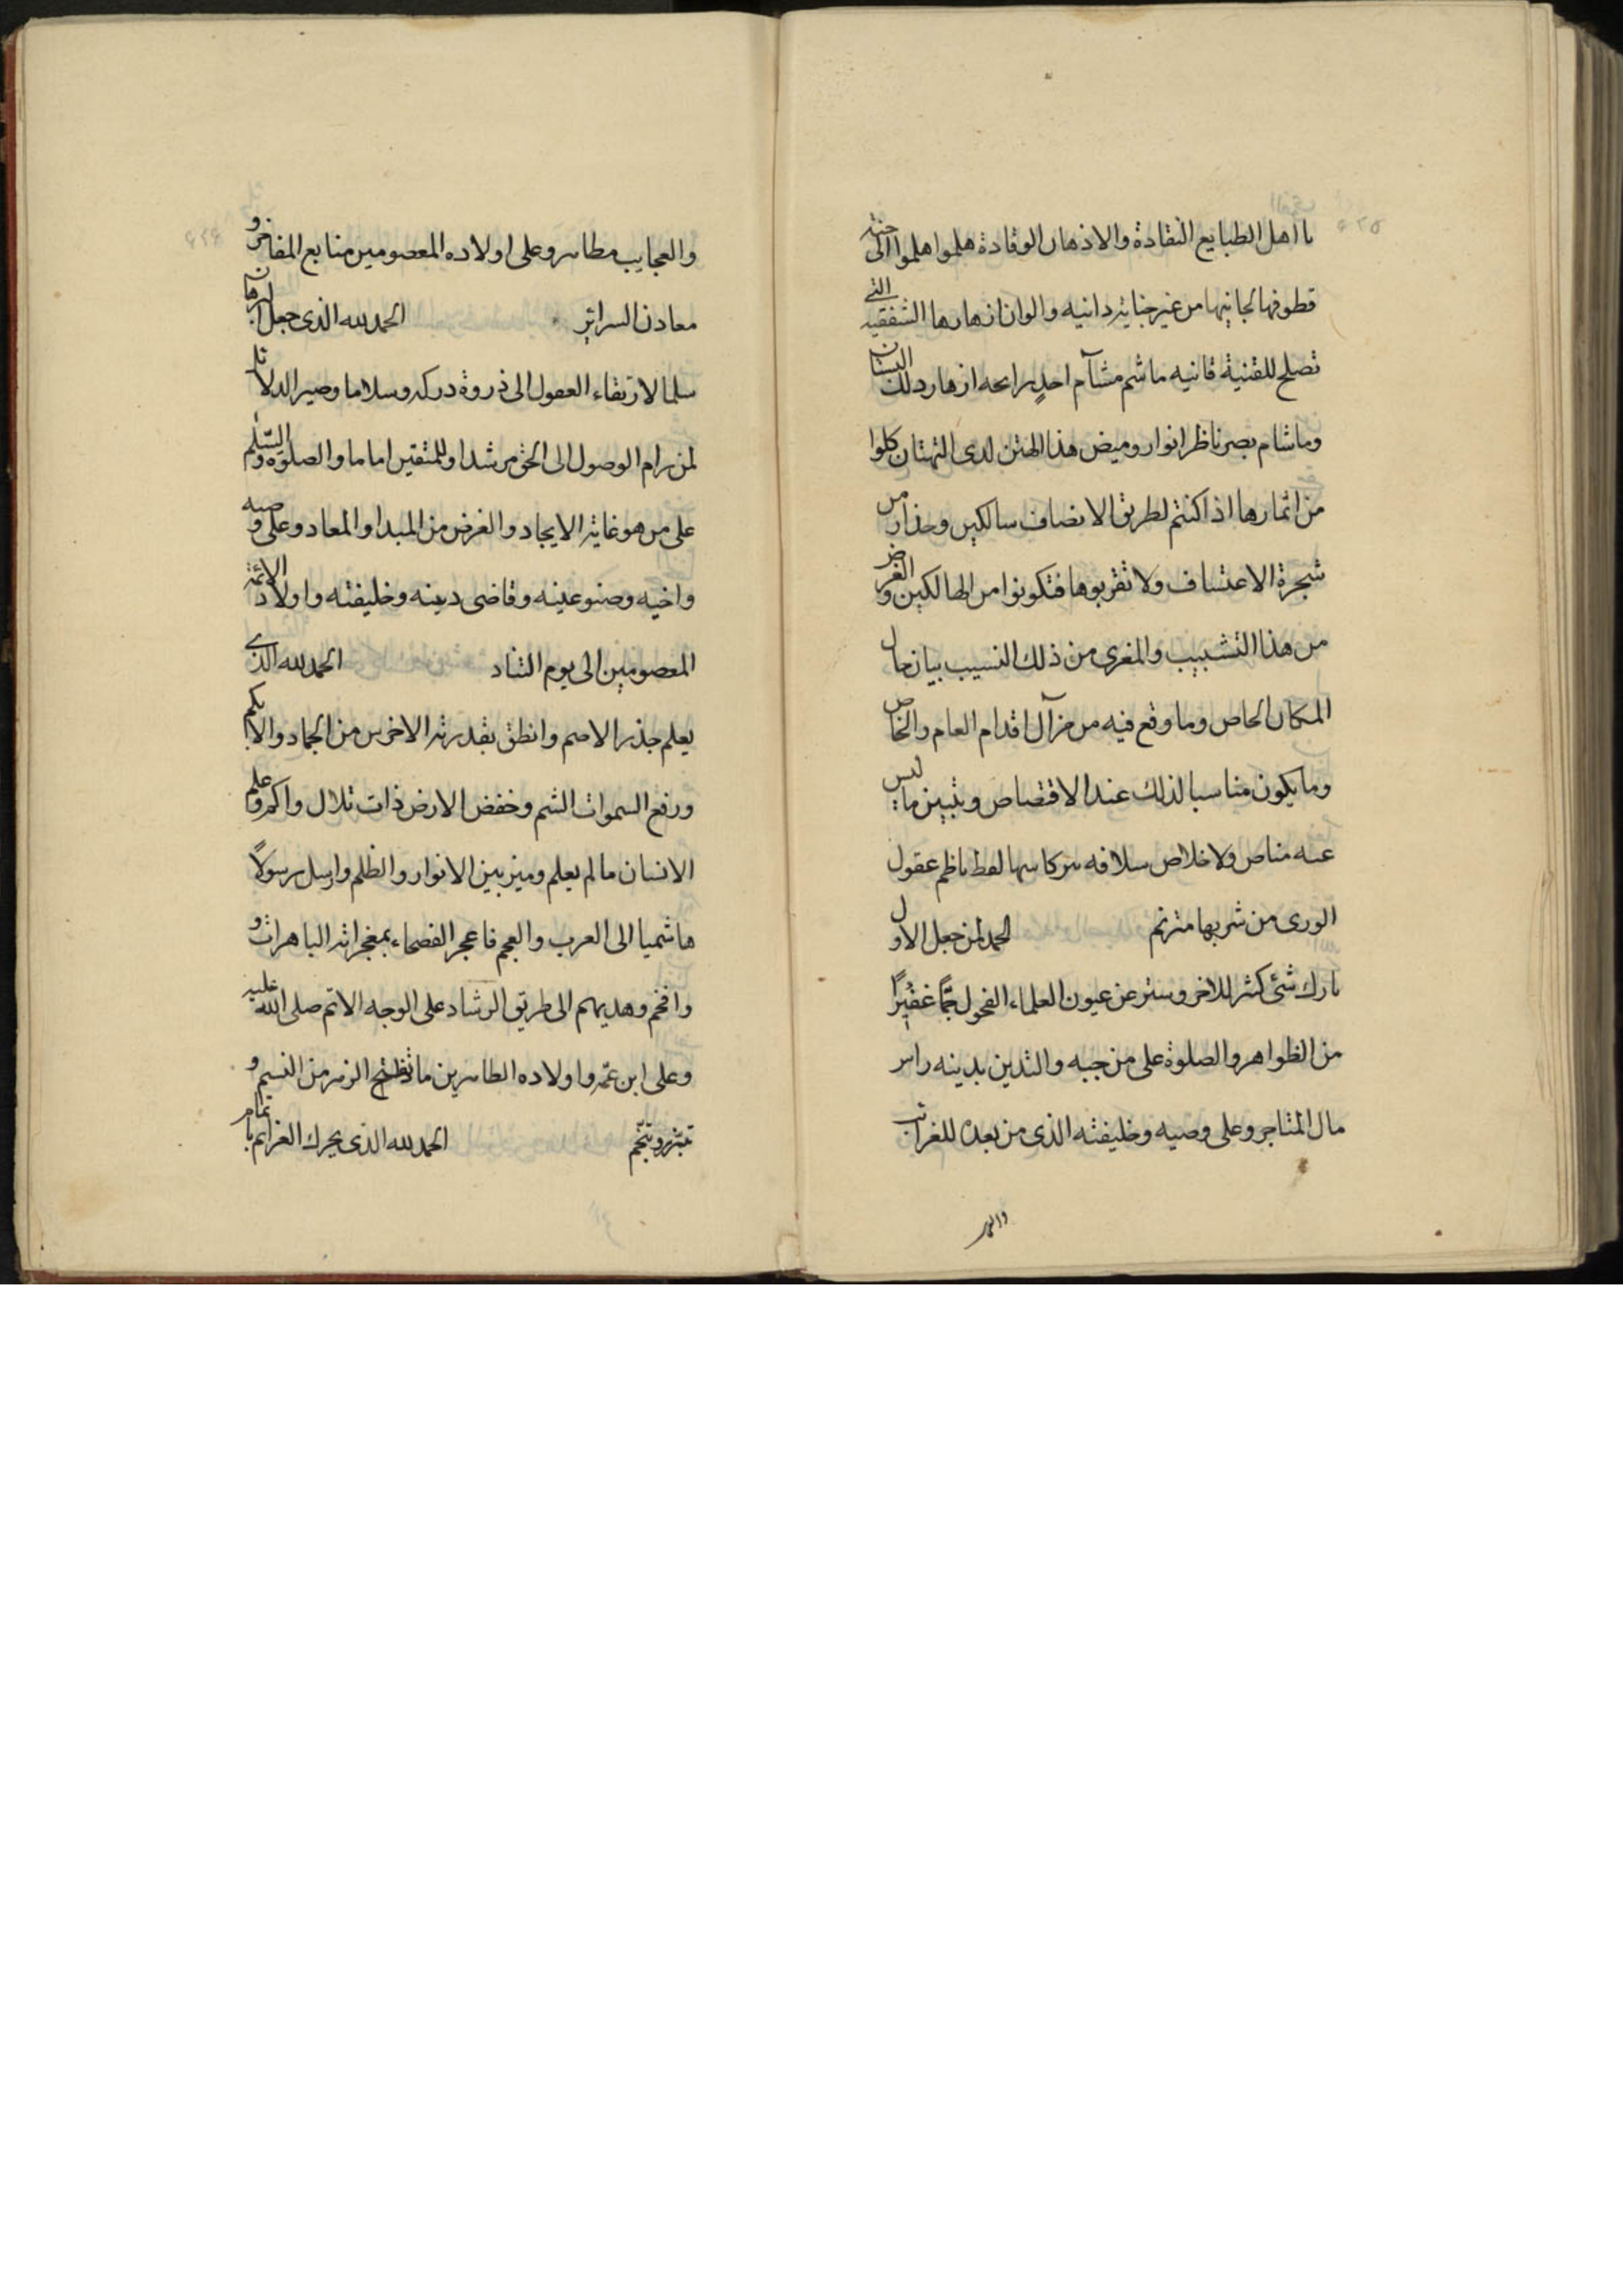 ٥٢٥
يا اهل الطبايع النقادة والاذهان الوقادة هلموا هلموا الى جنة
قطوفها لجانيها من غير جناية دانيه والوان ازهارها الشفقيه التي
تصلح للقنية قانيه ما شم مشآم احدٍ رايحه ازهار ذلك البستان
وما شام بصر ناظر انوار وميض هذا الهتن لدى التهتان كلوا
من اثمارها اذا كنتم لطريق الانصاف سالكين وحذار من
شجرة الاعتساف ولا تقربوها فتكونوا من الهالكين والغرض
من هذا التشبيب والمغزى من ذلك النسيب بيان حال
المكان الخاص وما وقع فيه من مزآل اقدام العام والخاص
وما يكون مناسبا لذلك عند الاقتصاص وتبيين ما ليس
عنه مناص ولا خلاص سلافه سر كاسها لفظ ناظم عقول
الورى من شربها مترنم الحمد لمن جعل الاول
تارك شئ كثير للاخر وستر عن عيون العلماء الفحول جمًّا غفيرًا
من الظواهر والصلوة على من حبه والتدين بدينه راس
مال المتاجر وعلى وصيه وخليفته الذي من بعده للغرائب
والعجايب
والعجايب مظاهر وعلى اولاده المعصومين منابع المفاخر و
معادن السرائر الحمد لله الذي جعل البرهان
سلما لارتقاء العقول الى ذروة دركه وسلاما وصير الدلائل
لمن رام الوصول الى الحق مرشدا وللمتقين اماما والصلوة والسّلم
على من هو غاية الايجاد والغرض من المبدا والمعاد وعلى وصيه
واخيه وصنو عينه وقاضى دينه وخليفته واولاده الائمة
المعصومين الى يوم التناد الحمد لله الذي
يعلم جذر الاصم وانطق بقدرته الاخرس من الجماد والابكم
ورفع السموات الشم وخفض الارض ذات تلال واكم وعلم
الانسان ما لم يعلم وميز بين الانوار والظلم وارسل رسولاً
هاشميا الى العرب والعجم فاعجز الفصحاء بمعجزاته الباهرات و
وافخم وهديهم الى طريق الرشاد على الوجه الاتم صلى الله عليه
وعلى ابن عمه واولاده الطاهرين ما تفتح الزهر من النسيم و
تبرز وتنجم الحمد لله الذي يحرك العزائم باتمام